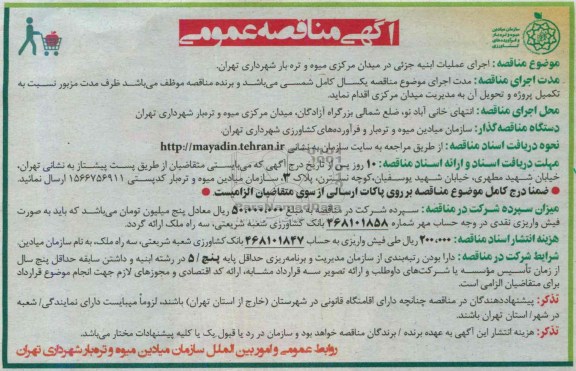 آگهی مناقصه عمومی
سازمان میادین
موضوع مناقصه: اجرای عملیات ابنیه جزئی در میدان مرکزی میوه و تره بار شهرداری تهران.
مدت اجرای مناقصه: مدت اجرای موضوع مناقصه یکسال کامل شمسی می‌باشد و برنده مناقصه موظف می‌باشد ظرف مدت مزبور نسبت به
تکمیل پروژه و تحویل آن به مدیریت میدان مرکزی اقدام نماید.
محل اجرای مناقصه: انتهای خانی آباد نو، ضلع شمالی بزرگراه آزادگان، میدان مرکزی میوه و تره‌بار شهرداری تهران
دستگاه مناقصه‌گذار: سازمان میادین میوه و تره‌بار و فرآورده‌های کشاورزی شهرداری تهران.
نحوه دریافت اسناد مناقصه: از طریق مراجعه به سایت سازمان به نشانی http://mayadin.tehran.ir
مهلت دریافت اسناد و ارائه اسناد مناقصه: ۱۰ روز پس از تاریخ درج آگهی که می‌بایستی متقاضیان از طریق پست پیشتاز به نشانی تهران،
خیابان شهید مطهری، خیابان شهید یوسفیان، کوچه پلاک ۳، سازمان میادین میوه و تره‌بار کدپستی ۱۵۶۶۷۵۶۹۱۱ ارسال نمایید.
● ضمنا درج کامل موضوع مناقصه بر روی پاکات ارسالی از سوی متقاضیان الزامیست ●
میزان سپرده شرکت در مناقصه: سپرده شرکت در مناقصه به مبلغ ۵۰٬۰۰۰٬۰۰۰ ریال معادل پنج میلیون تومان می‌باشد که باید به صورت
فیش واریزی نقدی در وجه حساب مهر شماره ۲۶۸۱۰۱۸۵۸ بانک کشاورزی شعبه شریعتی، سه راه ملک ارائه گردد.
هزینه انتشار اسناد مناقصه: ۲۰۰٬۰۰۰ ریال طی فیش واریزی به حساب ۲۶۸۱۰۱۸۴۷ بانک کشاورزی شعبه شریعتی، سه راه ملک، به نام سازمان میادین.
شرایط شرکت در مناقصه: دارا بودن رتبه‌بندی از سازمان مدیریت و برنامه‌ریزی حداقل پایه پنج/ ۵ در رشته ابنیه و داشتن سابقه حداقل پنج سال
از زمان تأسیس مؤسسه یا شرکت‌های داوطلب و ارائه تصویر سه قرارداد مشابه، ارائه کد اقتصادی و مجوزهای لازم جهت انجام موضوع قرارداد
برای متقاضیان الزامی است.
تذکر: پیشنهاددهندگان در مناقصه چنانچه دارای اقامتگاه قانونی در شهرستان (خارج از استان تهران) باشند، لزوماً میبایست دارای نمایندگی/ شعبه
در شهر/ استان تهران باشند.
تذکر: هزینه انتشار این آگهی به عهده برنده / برندگان مناقصه خواهد بود و سازمان در رد یا قبول یک یا کلیه پیشنهادات مختار می‌باشد.
روابط عمومی و امور بین الملل سازمان میادین میوه و تره‌بار شهرداری تهران